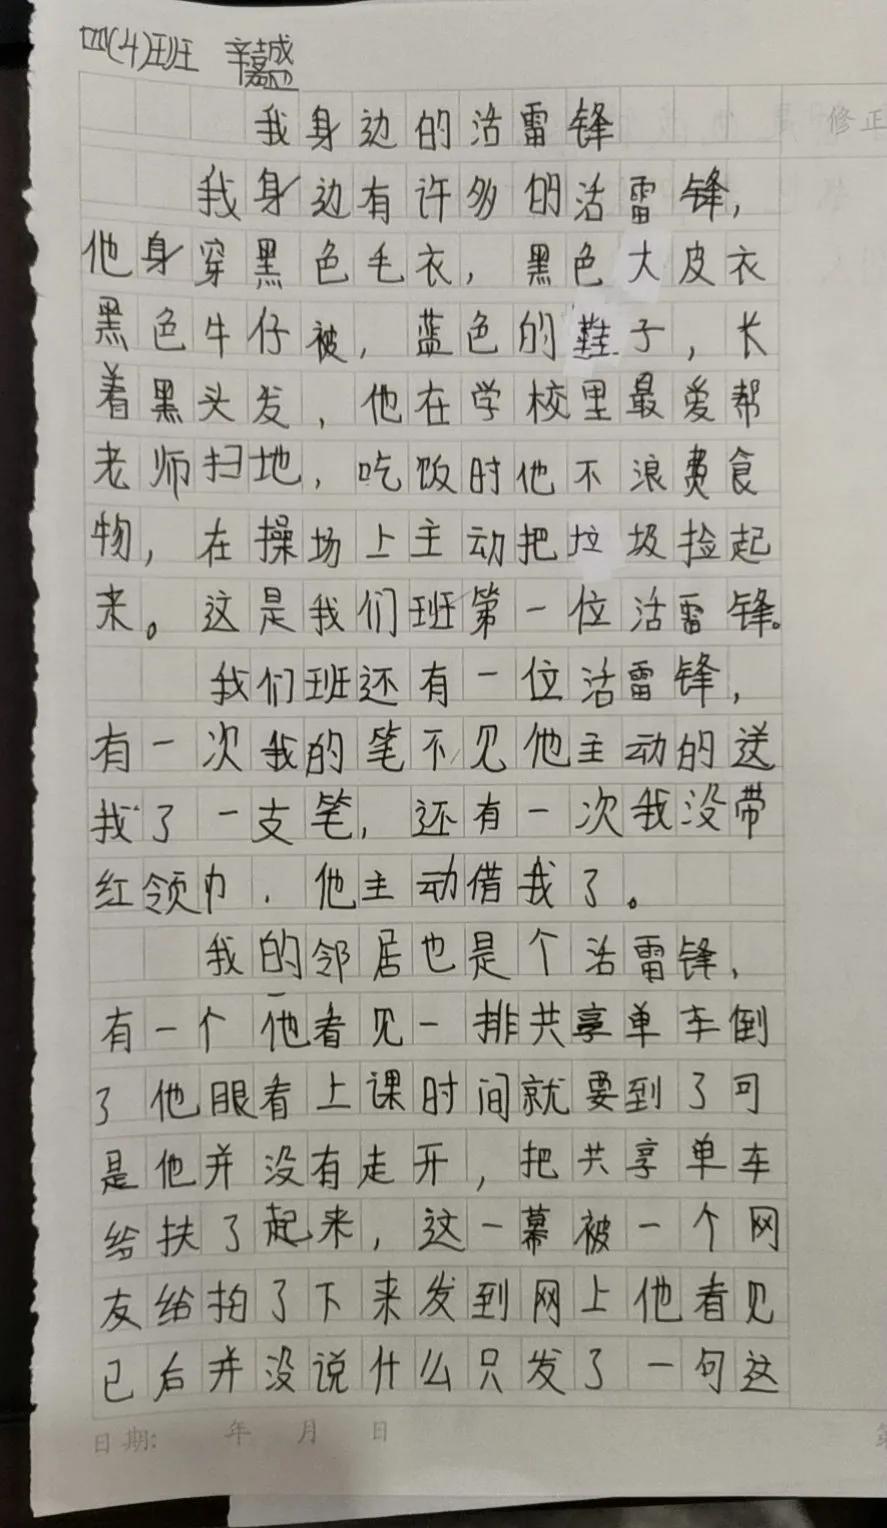 四(4)班 辛
我身边的活雷锋
修正
我身边有许多的活雷锋，
他身穿黑色毛衣，黑色大皮衣
黑色牛仔被，蓝色的鞋子，长
着黑头发，他在学校里最爱帮
老师扫地，吃饭时他不浪费食
物，在操场上主动把垃圾捡起
来。这是我们班第一位活雷锋。
我们班还有一位活雷锋，
有一次我的笔不见他主动的送
我了一支笔，还有一次我没带
红领巾．他主动借我了。
我的邻居也是个活雷锋，
有一个他看见一排共享单车倒
了他眼看上课时间就要到了可
是他并没有走开，把共享单车
给扶了起来，这一幕被一个网
友给拍了下来发到网上他看见
已后并没说什么只发了一句这
日期: 年 月 日